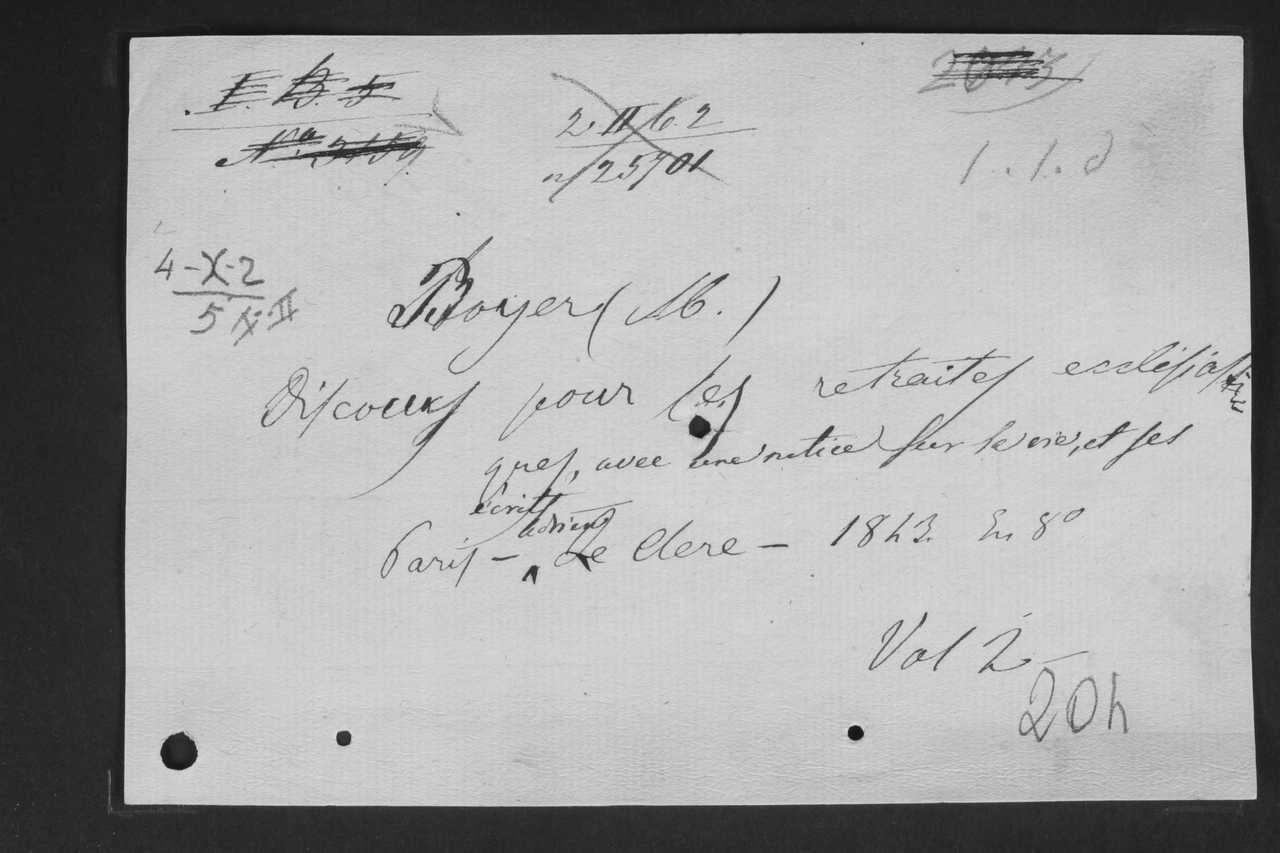 E. B. 5
Nº 3159
2. II 6. 2
n/ 25701
2043
1.1.d
4-X-2
5 X-II
Boyer (M.)
Discours pour les retraites ecclésiasti
ques, avec une notice sur sa vie, et ses
écrits
Paris - adrien Le Clere - 1843. En 8º
Vol 2
20h